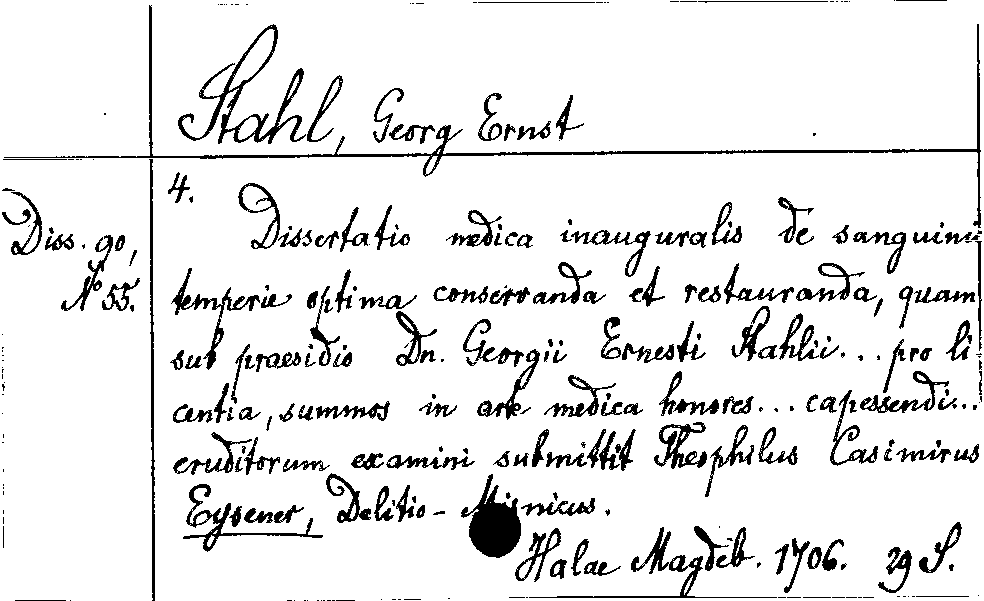 Stahl, Georg Ernst
4.
Diss. 90,
No 55.
Dissertatio medica inauguralis de sanguinis
temperie optima conservanda et restauranda, quam
sub praesidio Dn. Georgii Ernesti Stahlii... pro li
centia, summos in arte medica honores... capessendi...
eruditorum examini submittit Theophilus Casimirus
Eysener, Delitio-Misnicus.
Halae Magdeb. 1706. 29 S.